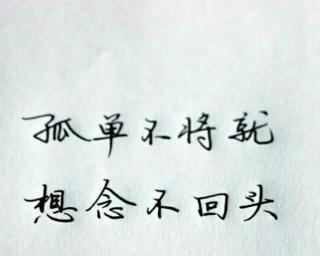 孤单不将就
想念不回头